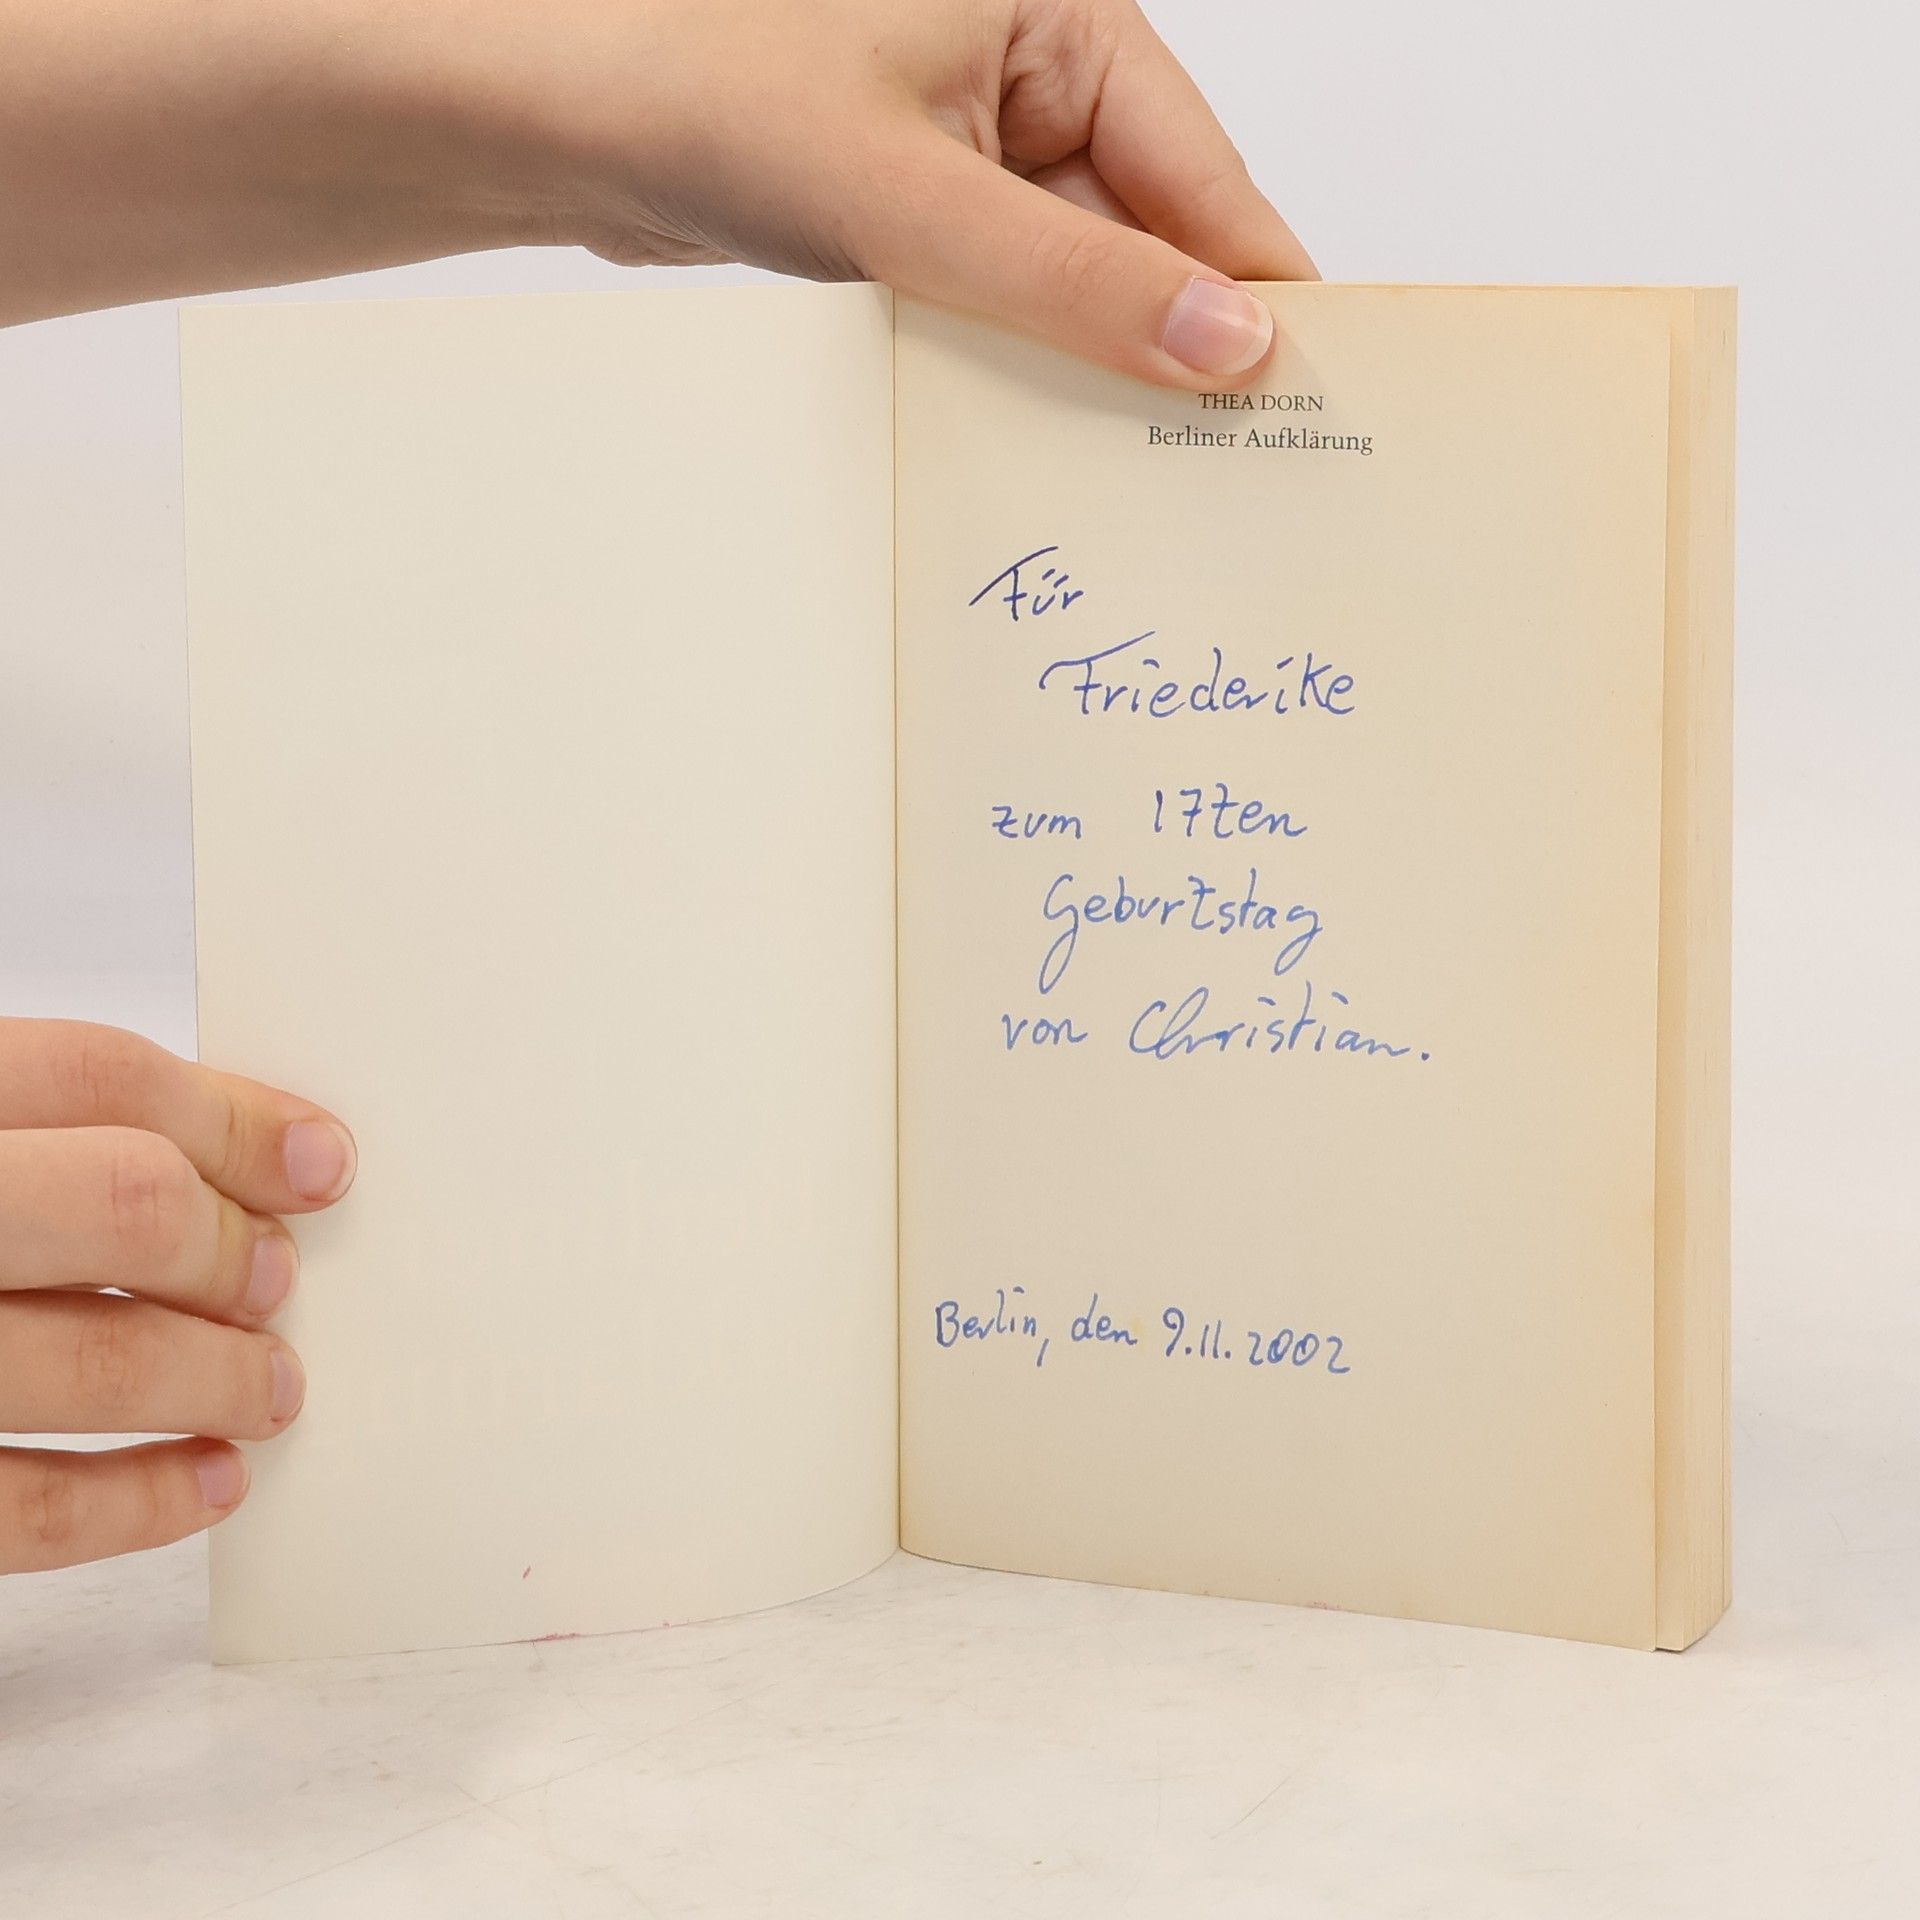 THEA DORN
Berliner Aufklärung
Für
Friederike
zum 17ten
Geburtstag
von Christian.
Berlin, den 9.11.2002